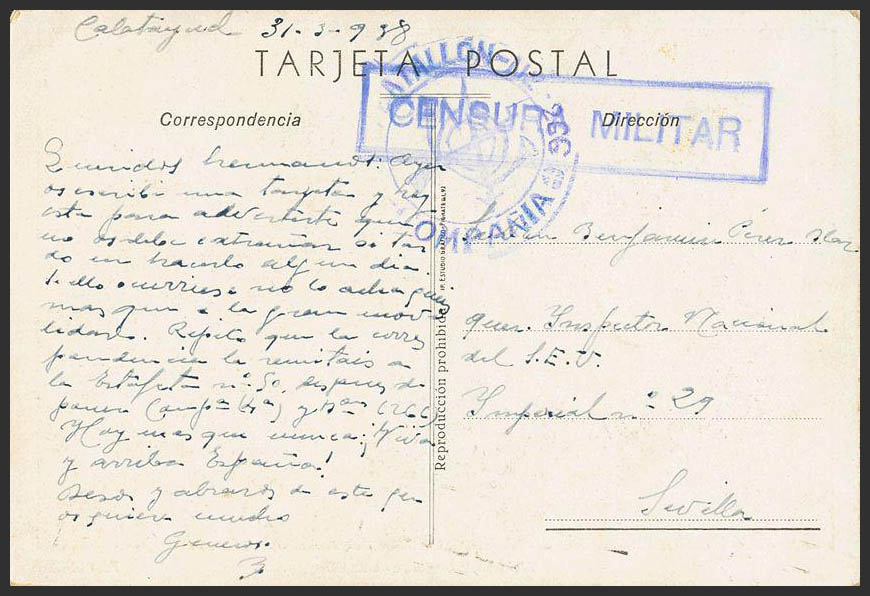 Calatayud 31-3-938
TARJETA POSTAL
BATALLON 266
COMPAÑIA
CENSURA MILITAR
Correspondencia
Dirección
Queridos hermanos: Ayer
os escribi una tarjeta y hoy
esta para advertirte que
no os debe extrañar si tar
do en hacerlo algun dia.
Si ello ocurriese no lo achaqueis
mas que a la gran movi
lidad. Repito que la corres
pondencia la remitais a
la Estafeta nº 50, despues de
poner (Compª y Bon (266)
Hoy mas que nunca ¡Viva
y arriba España!
Besos y abrazos de este que
os quiere mucho
Generoso
Reproducción prohibida
Benjamin Pérez Blaz
quez. Inspector Nacional
del S.E.U.
Imperial nº 29
Sevilla